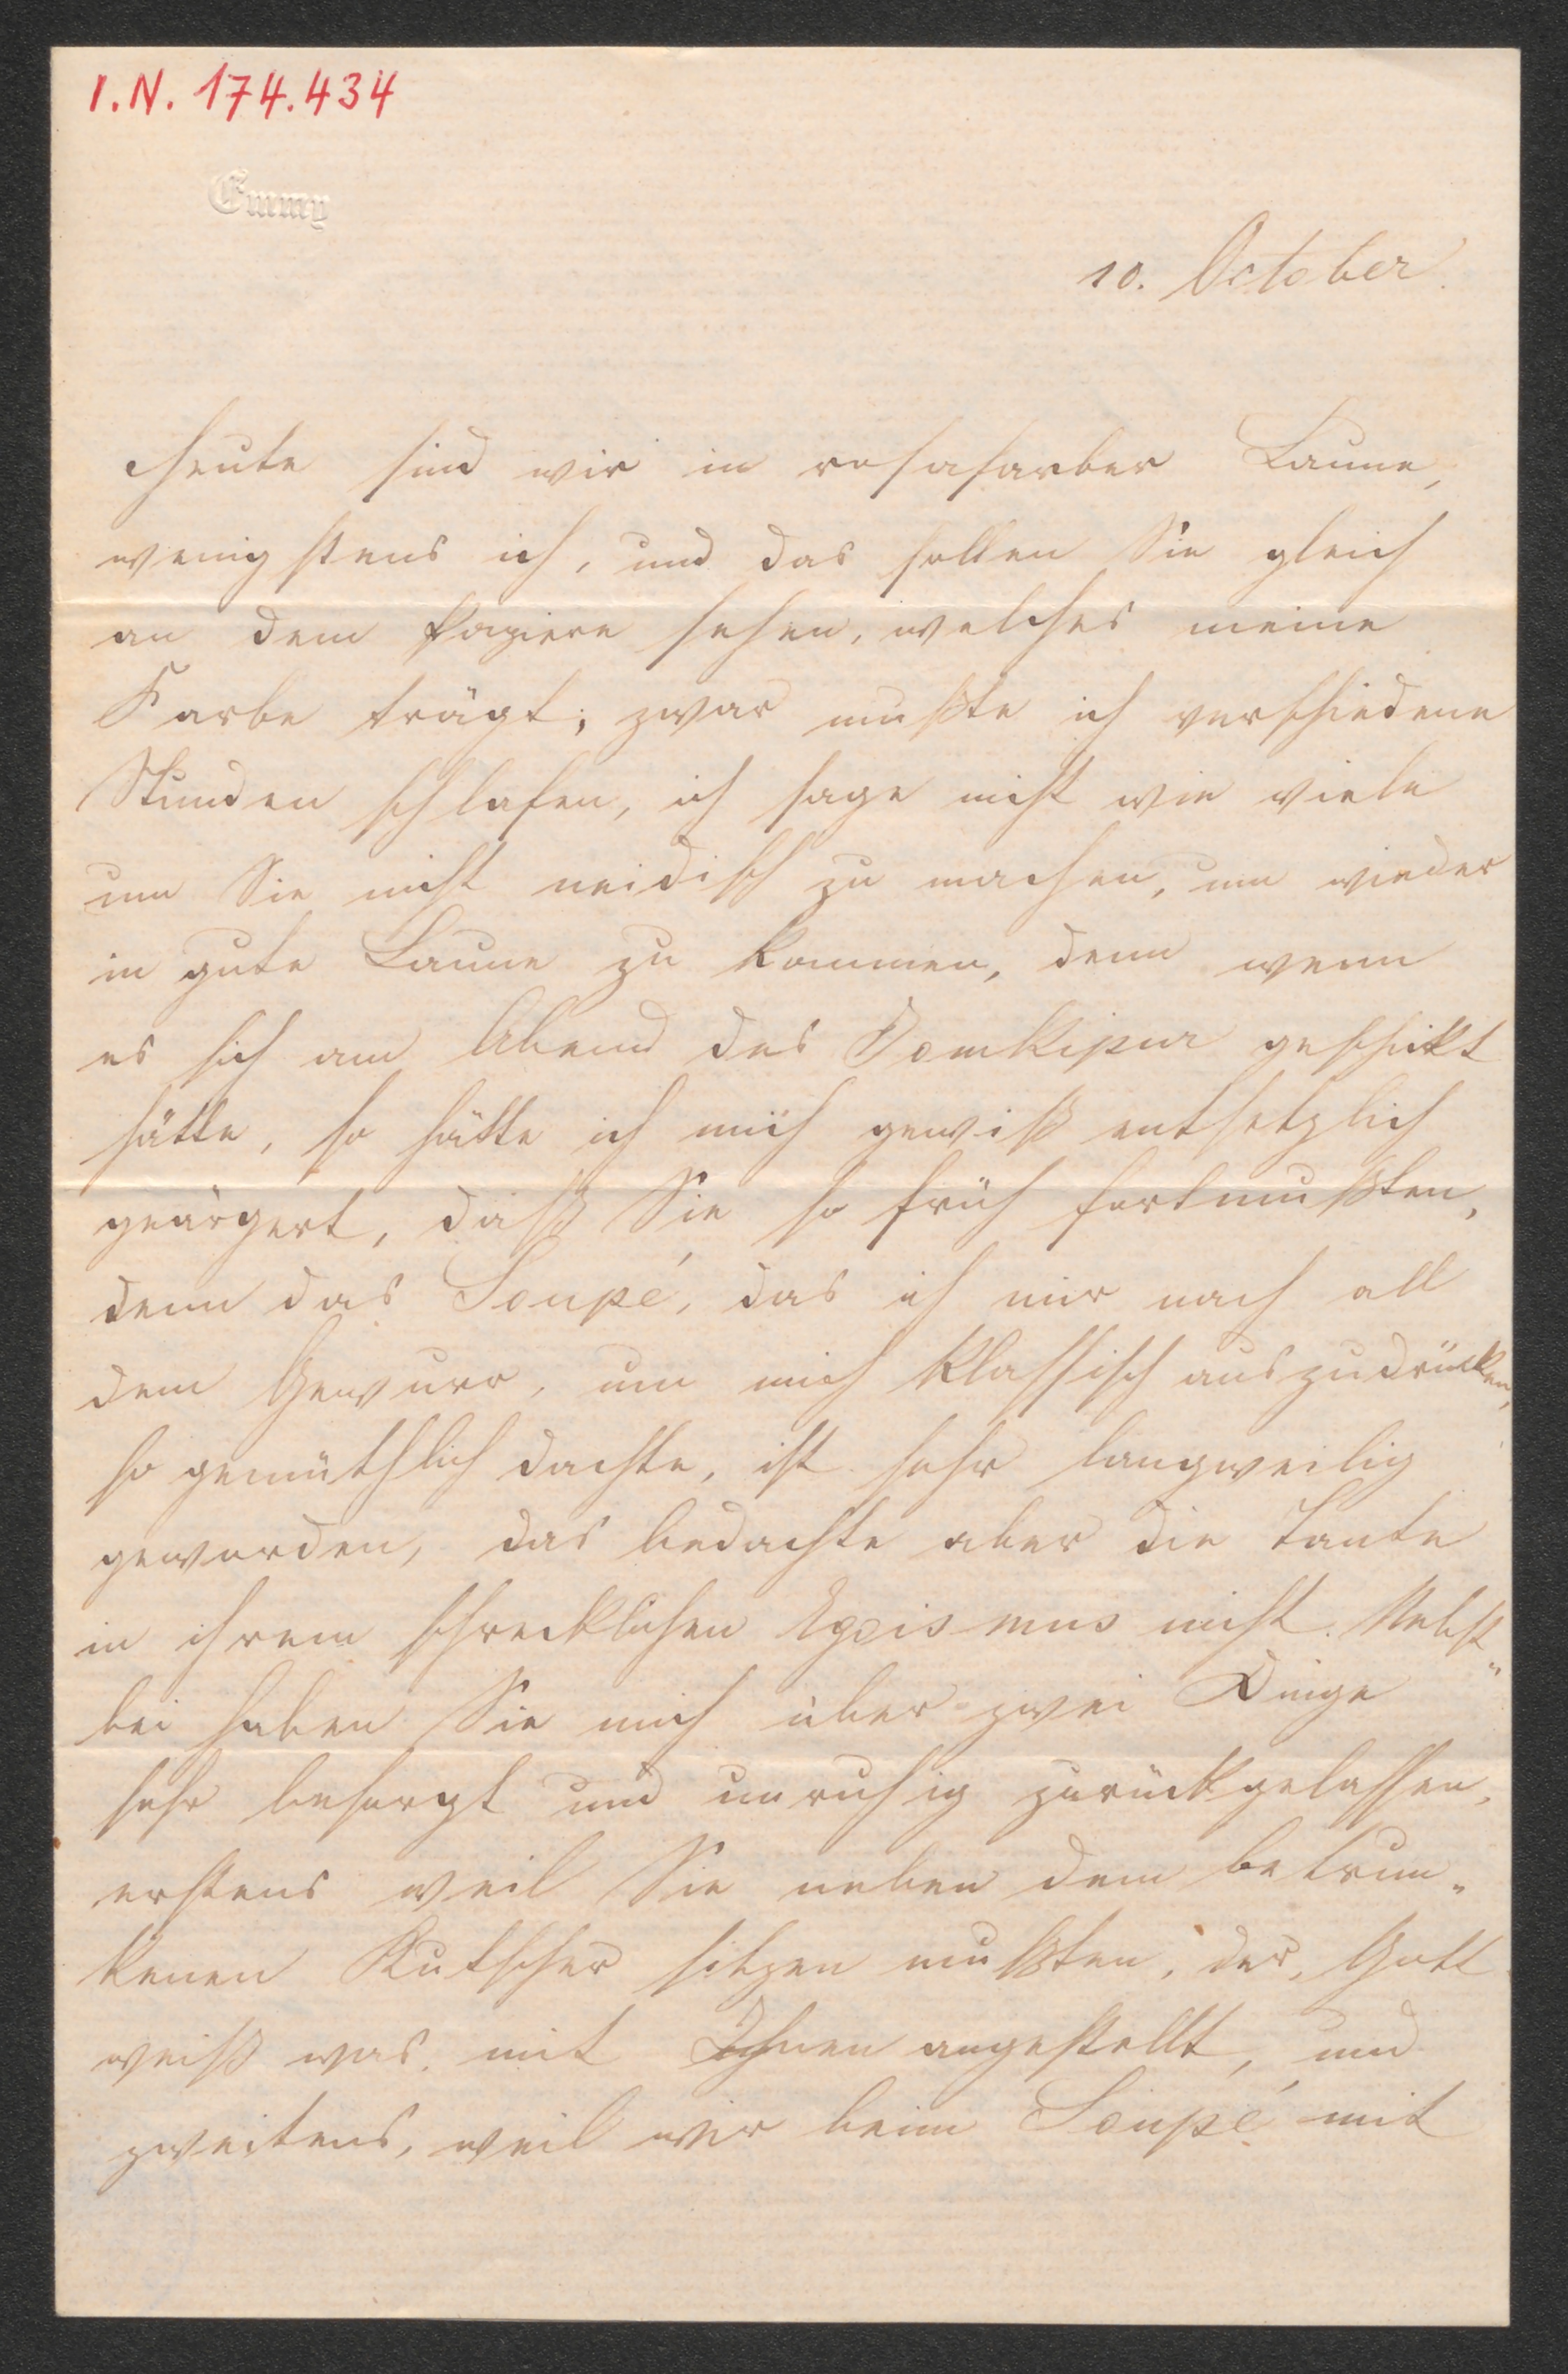 I.N. 174.434
Emmy
10. October.
Heute sind wir in rosafarber Laune,
wenigstens ich, und das sollen Sie gleich
an dem Papiere sehen, welches meine
Farbe trägt; zwar mußte ich verschiedene
Stunden schlafen, ich sage nicht wie viele
um Sie nicht neidisch zu machen, um wieder
in gute Laune zu kommen, denn wenn
es sich am Abend des Jomkipur geschikt
hätte, so hätte ich mich gewiß entsetzlich
geärgert, daß Sie so früh fortmußten,
denn das Soupé, das ich mir nach all
dem Gewurr, um mich klassisch auszudrücken,
so gemüthlich dachte, ist sehr langweilig
geworden, das bedachte aber die Tante
in ihrem schrecklichen Egoismus nicht. Nebst„
bei haben Sie mich über zwei Dinge
sehr besorgt und unruhig zurückgelassen,
erstens weil Sie neben dem betrun„
kenen Kutscher sitzen mußten, der, Gott
weiß was mit Ihnen angestellt, und
zweitens, weil wir beim Soupé mit